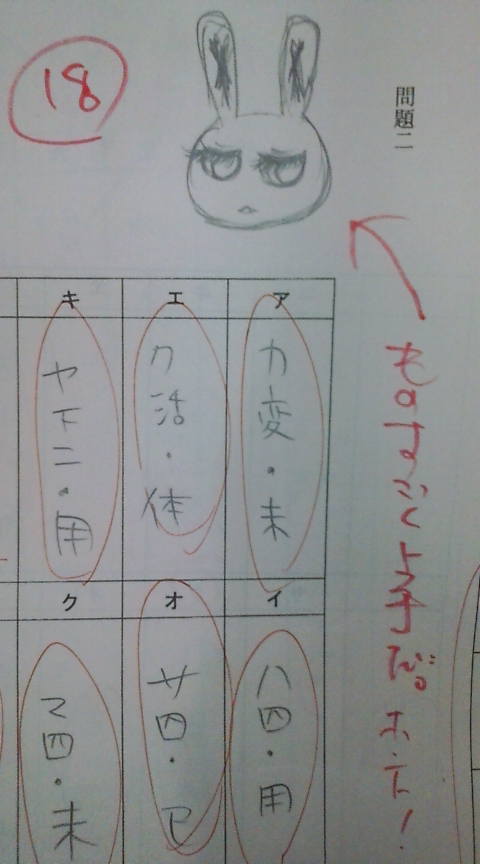 問題二
18
ものすごく上手だ。ホント!
ア
カ変・未
イ
ハ四・用
エ
ク活・体
オ
サ四・已
キ
ヤ下二・用
ク
マ四・未